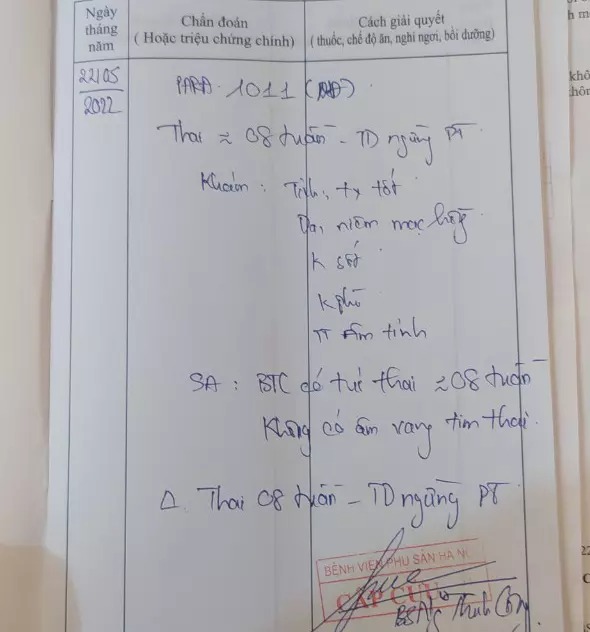 Ngày
tháng
năm
Chẩn đoán
( Hoặc triệu chứng chính)
Cách giải quyết
( thuốc, chế độ ăn, nghỉ ngơi, bồi dưỡng)
22/05
2022
PARA 1011
Thai ≈ 08 tuần - TD ngừng PT
Khám : Tỉnh, tx tốt
Da, niêm mạc hồng
K sốt
K phù
TT âm tính
SA : BTC có túi thai ≈ 08 tuần
Không có âm vang tim thai.
Δ. Thai 08 tuần - TD ngừng PT
BỆNH VIỆN PHỤ SẢN HÀ NỘ
CẤP CỨU